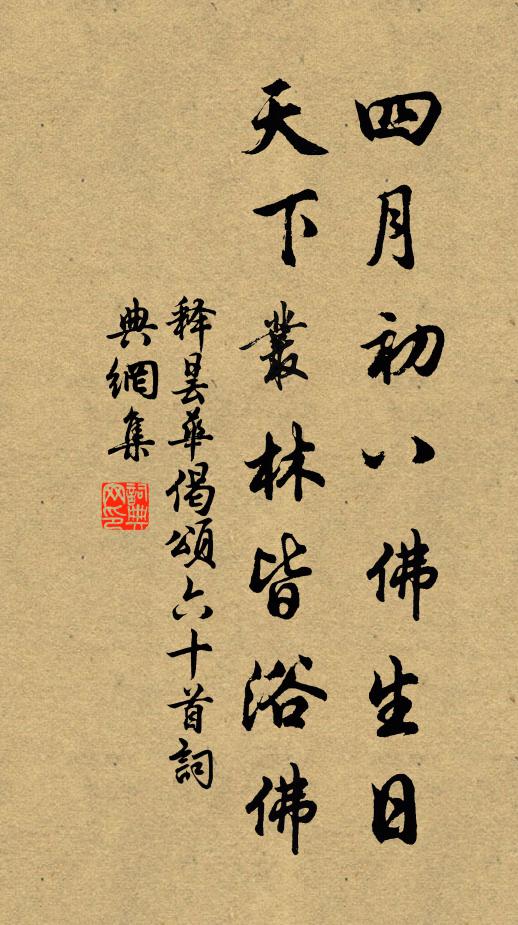 四月初八佛生日
天下叢林皆浴佛
释曇華偈頌六十首詞
典網集
詞典
网印